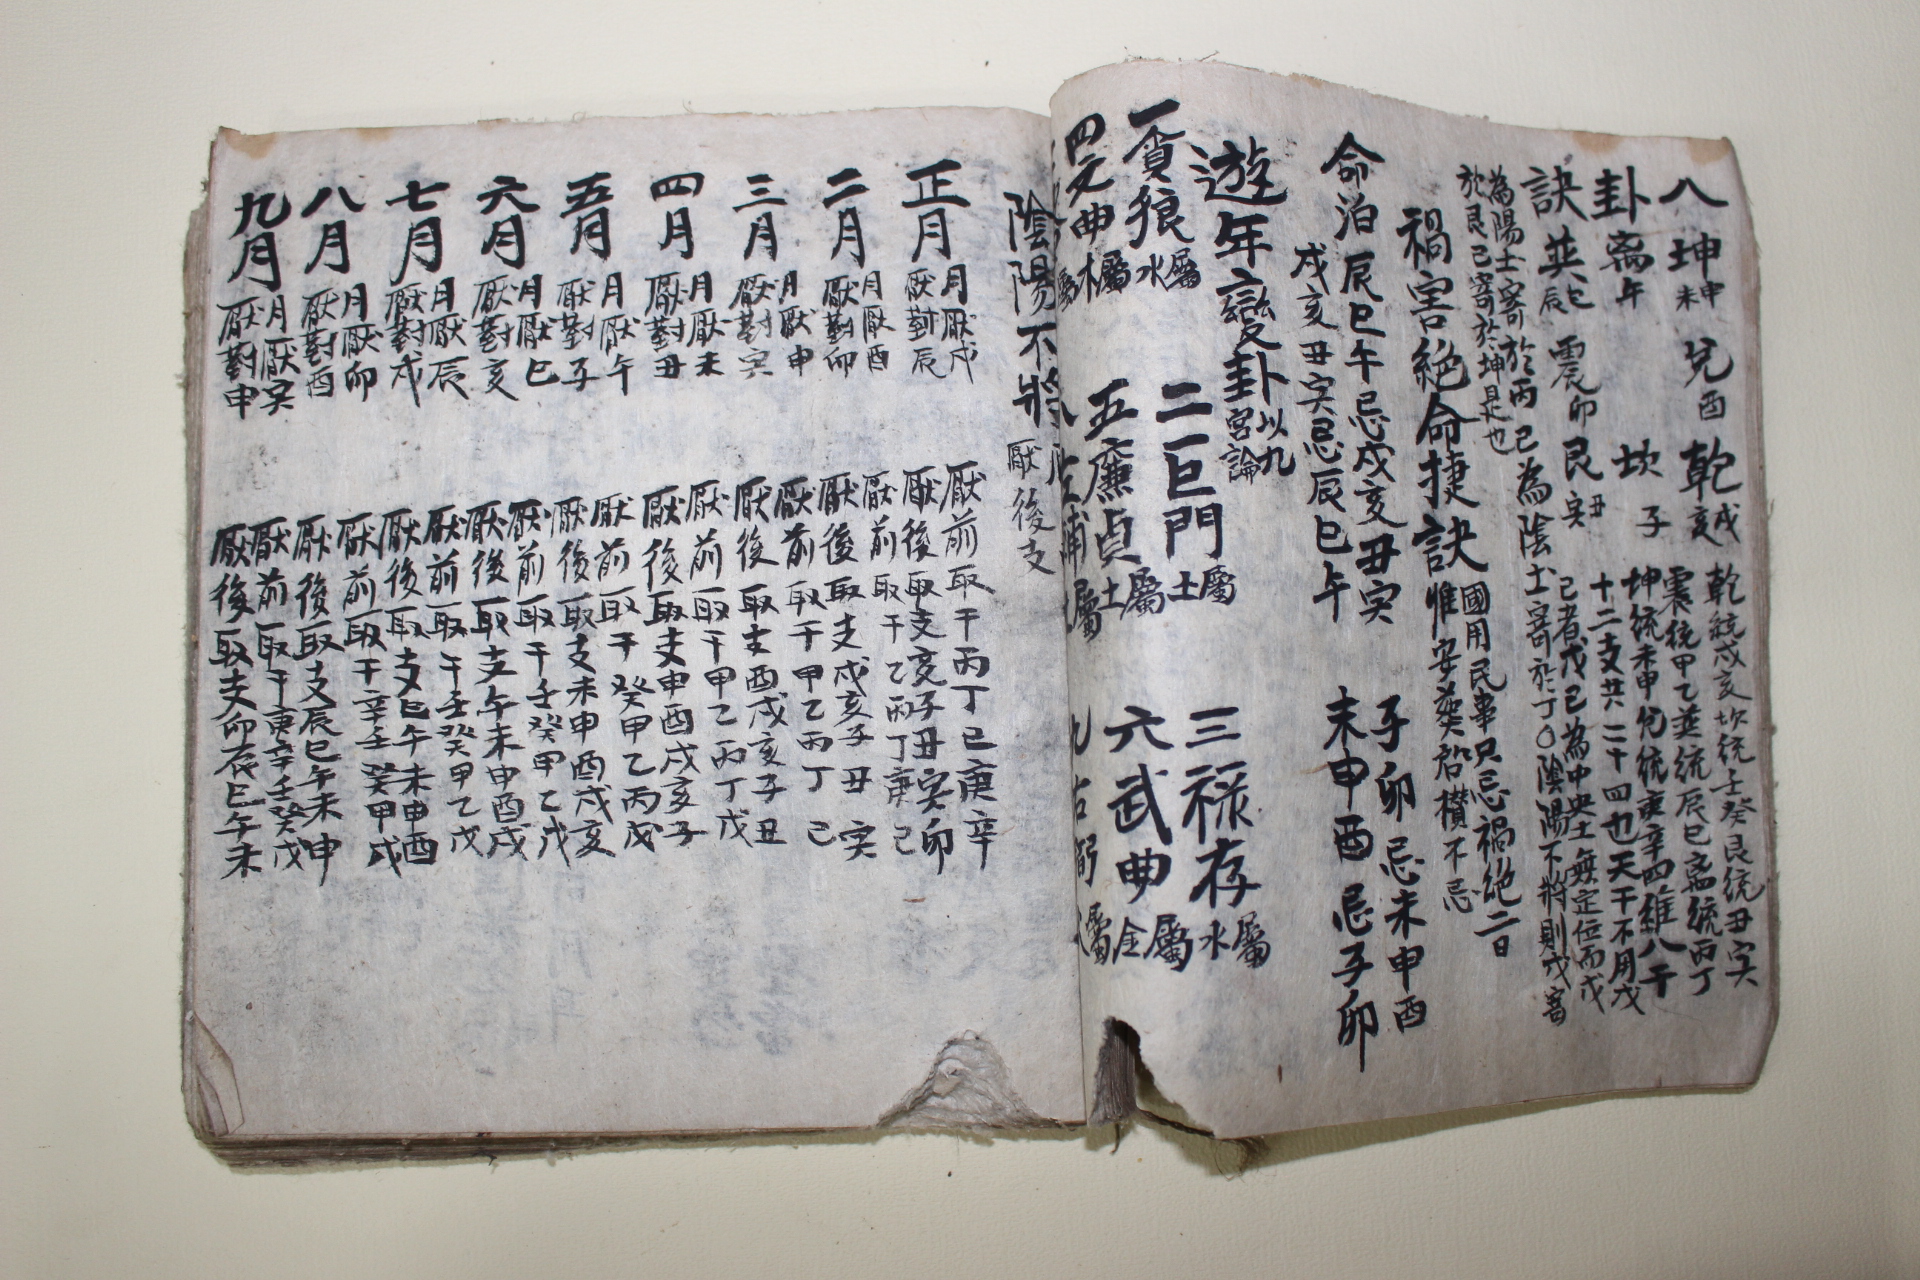 八 坤 申未 兌 酉 乾 戌亥 乾統戌亥坎統壬癸艮統丑寅
卦 离 午 坎 子 震統甲乙巽統辰巳离統丙丁
坤統未申兌統庚辛四維八干
訣 巽 巳辰 震 卯 艮 丑寅 十二支共二十四也天干不用戊
己者戊己為中央土無定位而戊
為陽土寄於丙己為陰土寄於丁○陰陽不將則戊寄
於艮己寄於坤是也
禍害絶命捷訣 國用民事只忌禍絶二日
惟安葬啓攢不忌
命泊 辰巳午忌戌亥丑寅 子卯忌未申酉
戌亥丑寅忌辰巳午 未申酉忌子卯
遊年變卦 以九宮論
一貪狼 屬水 二巨門 屬土 三祿存 屬水
四文曲 屬木 五廉貞 屬土 六武曲 屬金
陰陽不將 厭後支
正月 月厭戌 厭前取干丙丁己庚辛
厭對辰 厭後取支亥子丑寅卯
二月 月厭酉 厭前取干乙丙丁庚己
厭對卯 厭後取支戌亥子丑寅
三月 月厭申 厭前取干甲乙丙丁己
厭對寅 厭後取支酉戌亥子丑
四月 月厭未 厭前取干甲乙丙丁戊
厭對丑 厭後取支申酉戌亥子
五月 月厭午 厭前取干癸甲乙丙戊
厭對子 厭後取支未申酉戌亥
六月 月厭巳 厭前取干壬癸甲乙戊
厭對亥 厭後取支午未申酉戌
七月 月厭辰 厭前取干壬癸甲乙戊
厭對戌 厭後取支巳午未申酉
八月 月厭卯 厭前取干辛壬癸甲戊
厭對酉 厭後取支辰巳午未申
九月 月厭寅 厭前取干庚辛壬癸戊
厭對申 厭後取支卯辰巳午未